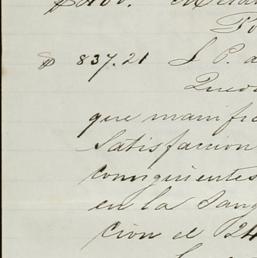 $ 837.21 S P. a
que manifi
satisfaccion
consiguientes
en la Sang
cion el 24